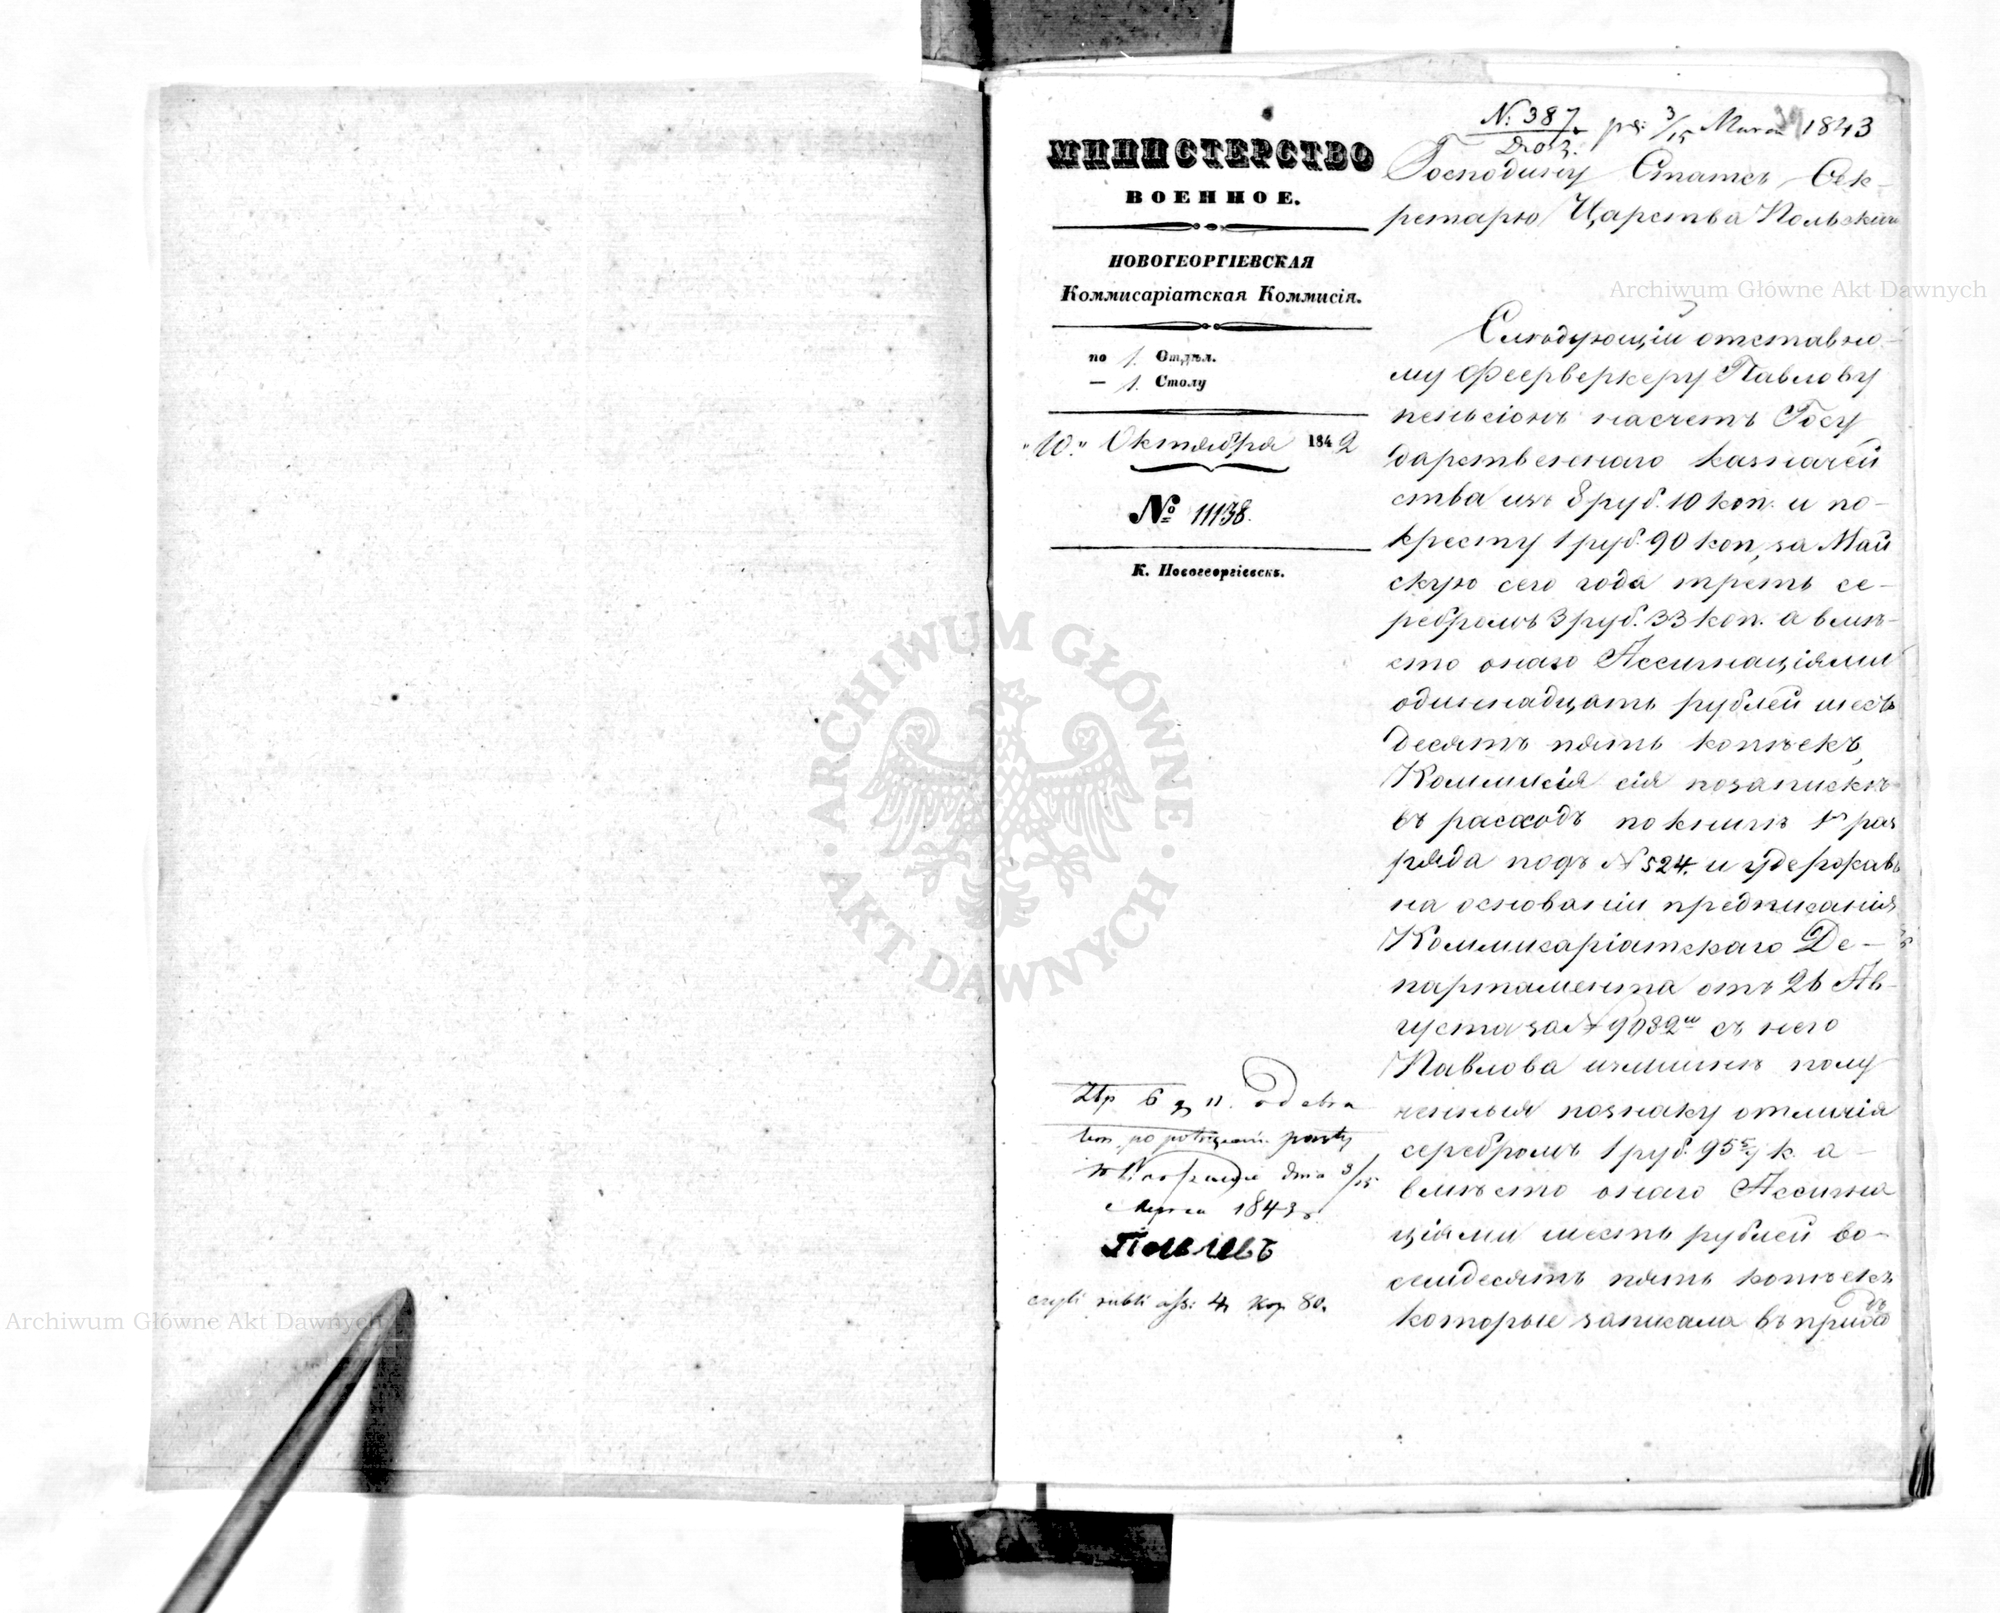 МИНИСТЕРСТВО
ВОЕННОЕ.
НОВОГЕОРГІЕВСКАЯ
Коммисаріатская Коммисія.
по 1. Отдѣл.
— 1. Столу
"10." Октября 1842
№ 11138.
К. Новогеоргіевскъ.
N: 387 3/15 1843
Господину Статсъ Сек-
ретарю Царства Польскаго
Слѣдующій отставно-
му Феерверкеру Павлову
пенсіонъ насчетъ Госу
дарственнаго казначей
ства изъ 8 руб. 10 коп. и по-
кресту 1 руб. 90 коп, за Май
скую сего года треть се-
ребромъ 3 руб. 33 коп. а вмѣ-
сто онаго Ассигнаціями
одиннадцать рублей шесть
десятъ пять копѣекъ,
Коммисія сія позапискѣ
въ расходъ по книгѣ 1й раз
ряда подъ N 524. и удержавъ
на основаніи предписанія
Коммисаріатскаго Де-
партамента отъ 26 Ав-
густа за N 9032мъ съ него
Павлова излишнѣ полу
ченныя познаку отличія
серебромъ 1 руб. 95 5/7 к. а
вмѣсто онаго Ассигна
ціями шесть рублей во-
семдесятъ пять копѣекъ
которые записала въ приходъ
6 11.
dnia 3/15
1843
Павловъ
czyli rubli ass: 4, kop 80.
Archiwum Główne Akt Dawnych
Archiwum Główne Akt Dawnych
ARCHIWUM GŁÓWNE
AKT DAWNYCH